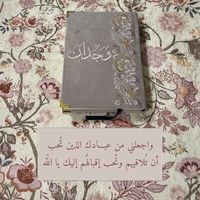 وجدان
واجعلني من عبادك الذين تحب
أن تلاقيهم وتحب إقبالهم إليك يا الله